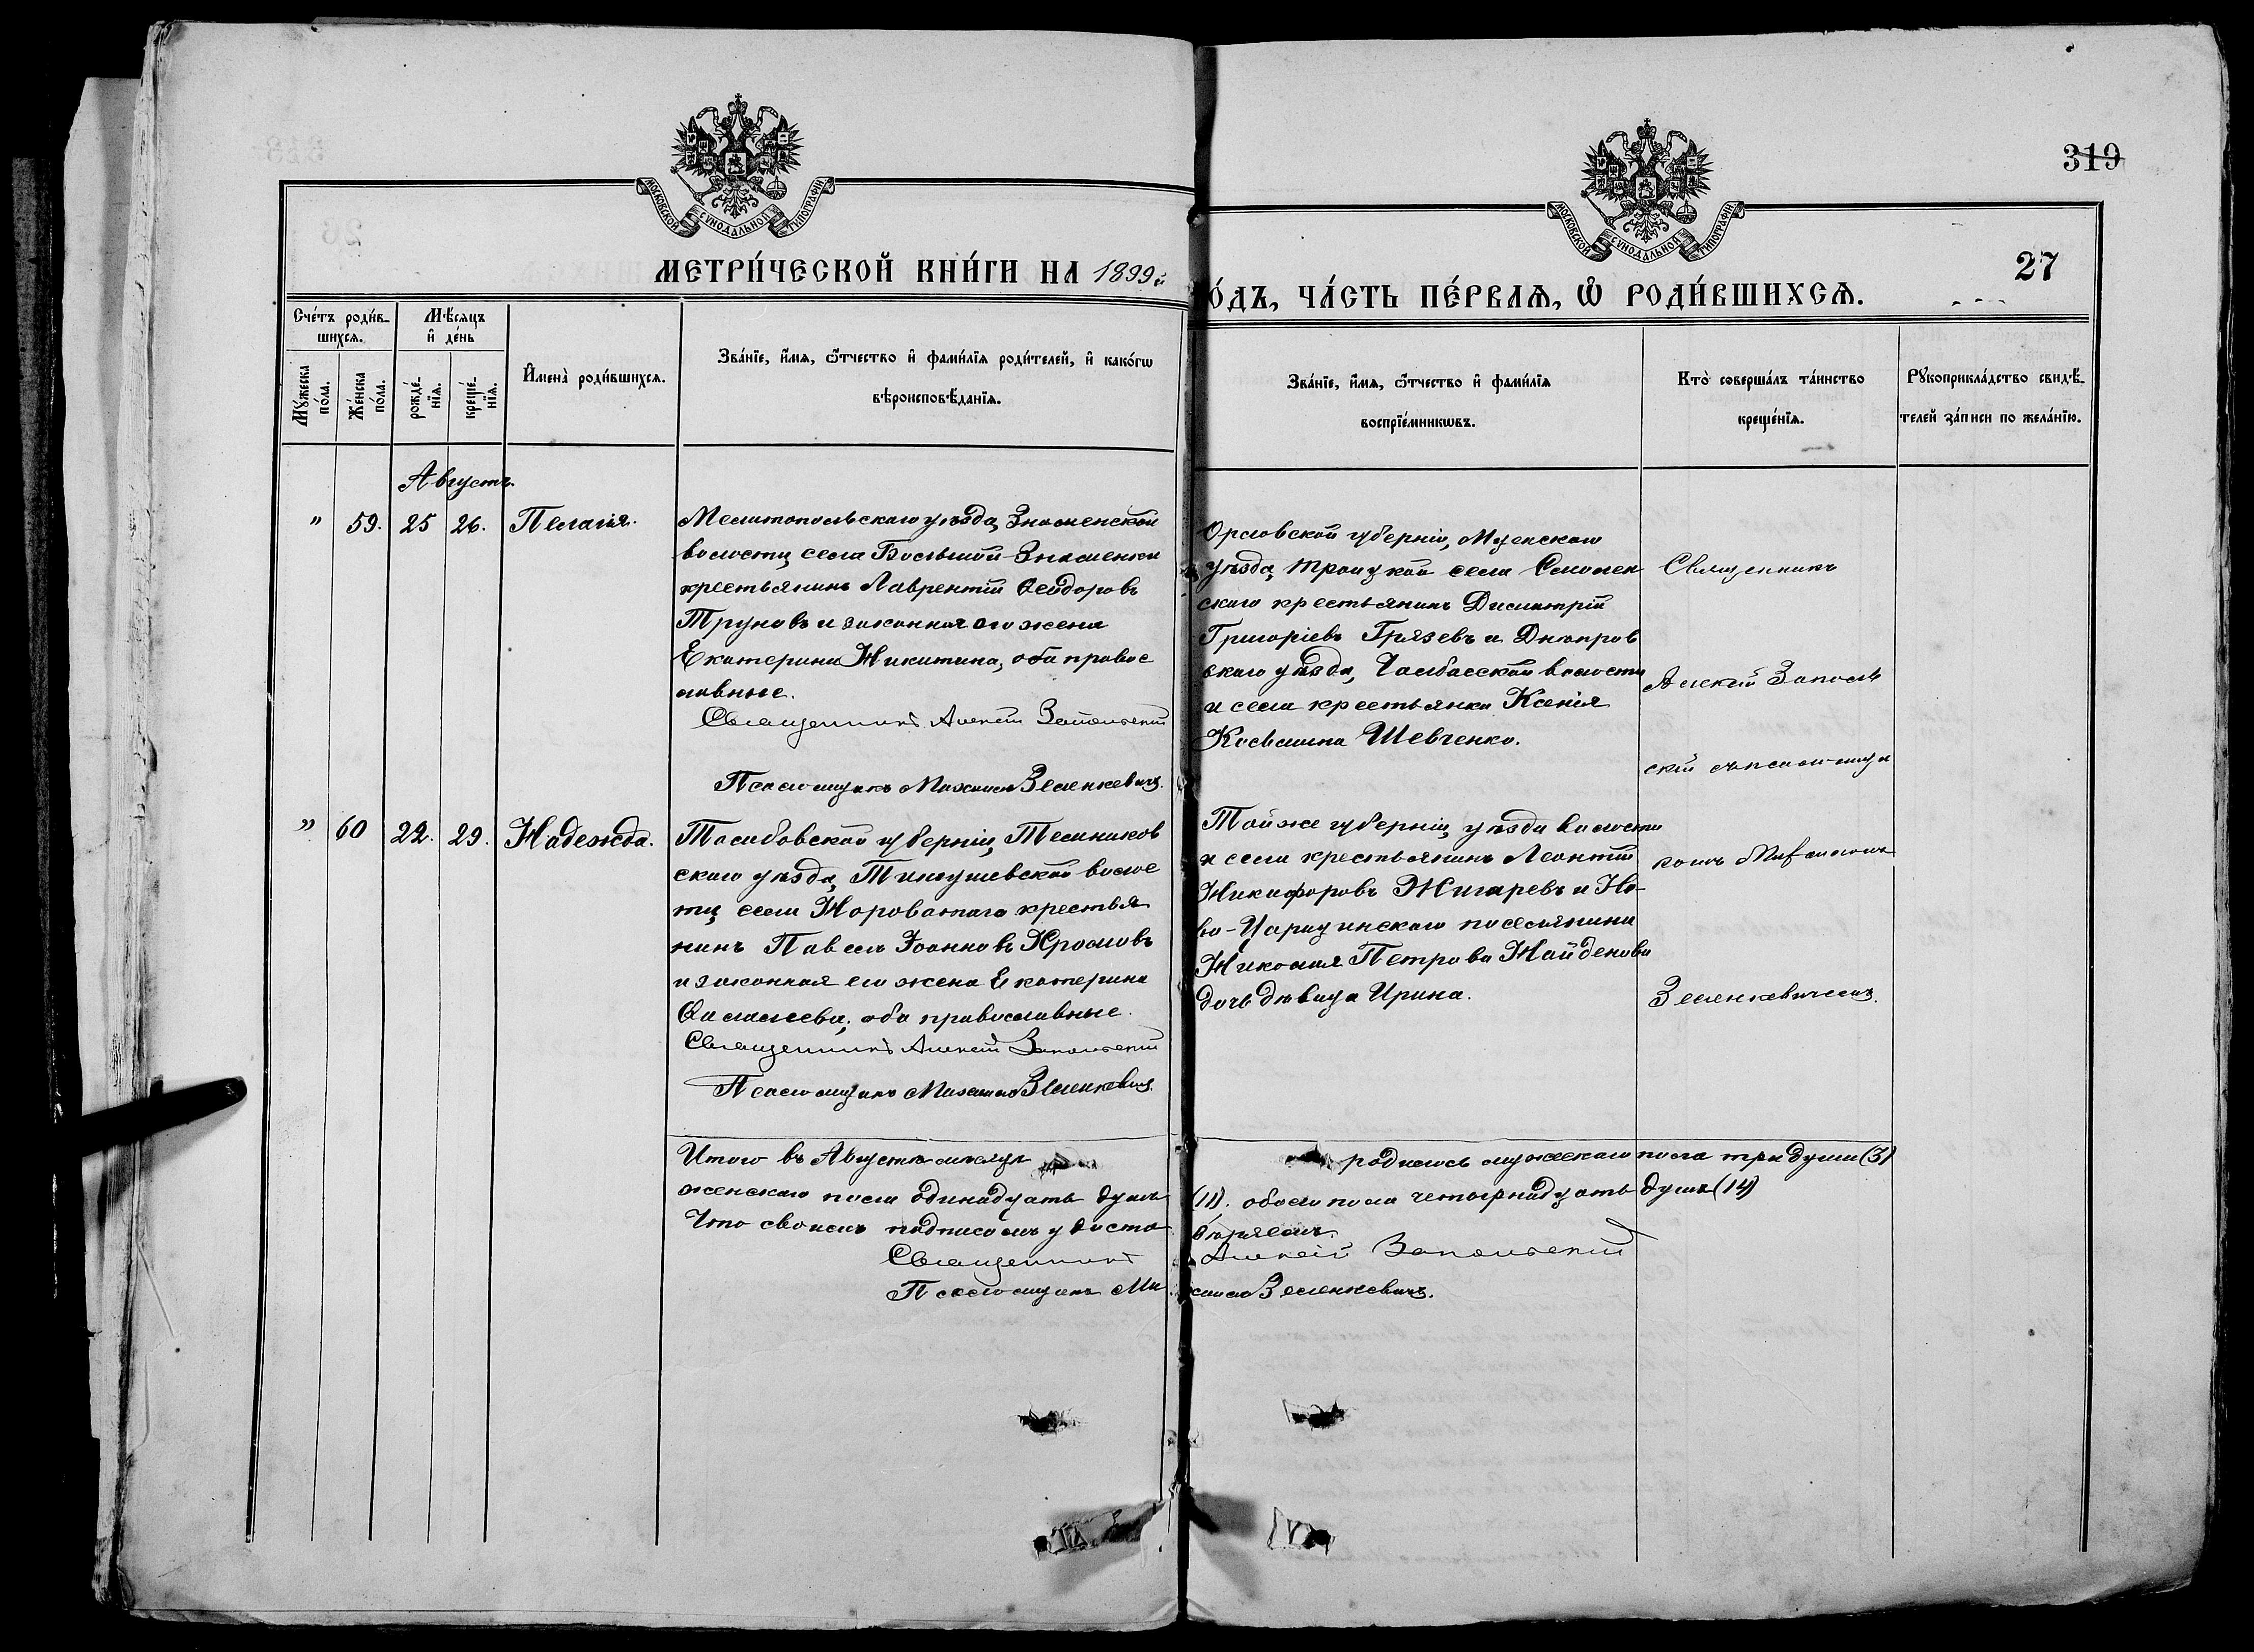 319
27
МОСКОВСКОЙ СѴНОДАЛЬНОЙ ТИПОГРАФІИ
МОСКОВСКОЙ СѴНОДАЛЬНОЙ ТИПОГРАФІИ
МЕТРИ́ЧЕСКОЙ КНИ́ГИ НА 1899й
О́ДЪ, ЧА́СТЬ ПЕ́РВАѦ, Ѡ҆ РОДИ́ВШИХСѦ.
Сче́тъ роди́в-
шихсѧ.
Мѣ́сѧцъ
и҆ де́нь
Мꙋ́жеска
по́ла.
Же́нска
по́ла.
рожде́-
нїѧ.
креще́-
нїѧ.
И҆мена̀ роди́вшихсѧ.
Зва́нїе, и҆́мѧ, ѻ҆́тчество и҆ фами́лїѧ роди́телей, и҆ како́гѡ
вѣроисповѣ́данїѧ.
Зва́нїе, и҆́мѧ, ѻ҆́тчество и҆ фами́лїѧ
воспрїе́мникѡвъ.
Кто̀ соверша́лъ та́инство
креще́нїѧ.
Рꙋкоприкла́дство свидѣ́-
телей за́писи по жела́нїю.
Августъ.
" 59. 25 26. Пелагія.
Мелитопольскаго уѣзда, Знаменской
волости, села Большой-Знаменки
крестьянинъ Лаврентій Ѳеодоровъ
Труновъ и законная его жена
Екатерина Никитина, оба правос
лавные.
Священникъ Алексій Запольскій
Псаломщикъ Михаилъ Зеленкевичъ.
Орловской губерніи, Мценскаго
уѣзда, Троицкой села Смолен
скаго крестьянинъ Димитрій
Григоріевъ Грязевъ и Днѣпров
скаго уѣзда, Чалбасской волости
и села крестьянка Ксенія
Косьмина Шевченко.
Священникъ
Алексій Заполь
скій съ псаломщи
комъ Михаиломъ
Зеленкевичемъ.
" 60 22. 29. Надежда.
Тамбовской губерніи, Темников
скаго уѣзда, Тенгушевской волос
ти, села Нороватаго крестья
нинъ Павелъ Іоанновъ Хромовъ
и законная его жена Екатерина
оба православные.
Священникъ Алексій Запольскій
Псаломщикъ Михаилъ Зеленкевичъ.
Той же губерніи, уѣзда волости
и села крестьянинъ Леонтій
Никифоровъ Жигаревъ и Но-
во-Царицинскаго поселянина
Николая Петрова Найденова
дочь дѣвица Ирина.
Итого въ Августѣ мѣсяцѣ родилось мужескаго пола три души (3)
женскаго пола одинадцать душъ (11). обоего пола четырнадцать душъ (14)
Что своимъ подписомъ удосто
вѣряемъ.
Священникъ Алексій Запольскій
Псаломщикъ Михаилъ Зеленкевичъ.